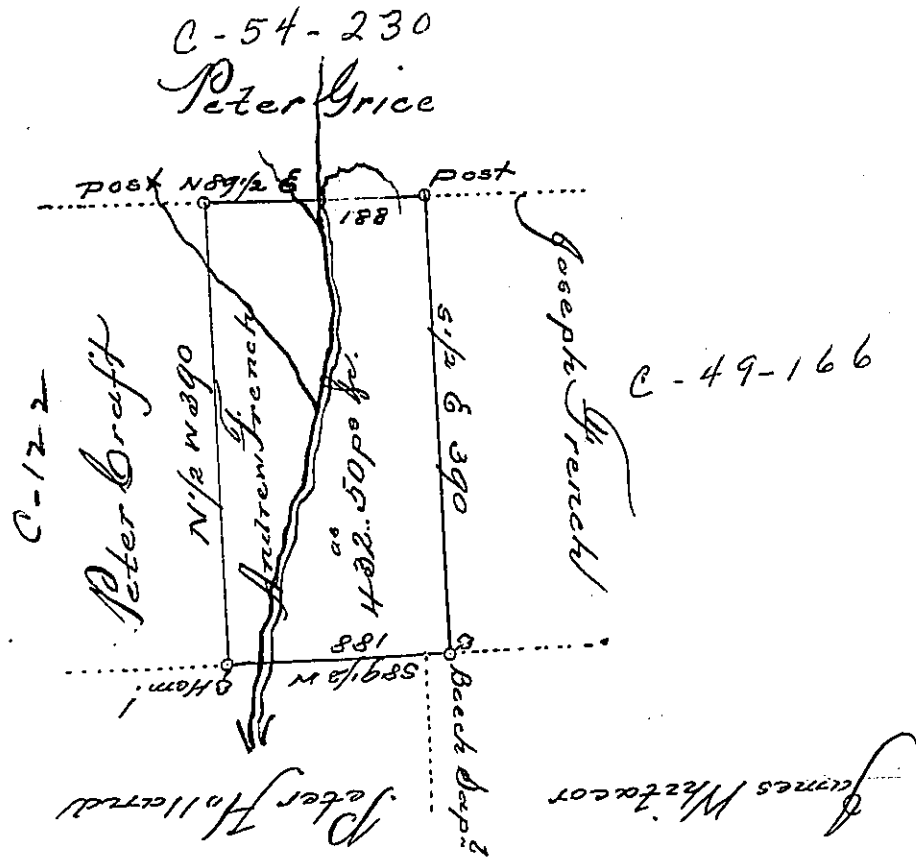 C-54-230
Peter Grice
post N 89 1/2 E post
188
C-122
Peter Craft
N 1/2 W 390
Andrew French
432 as 50 ps &c.
S 1/2 E 390
Joseph French
C-49-166
188
S 89 1/2 W
Heml
Beech Sapg
Peter Holland
James Whitacor